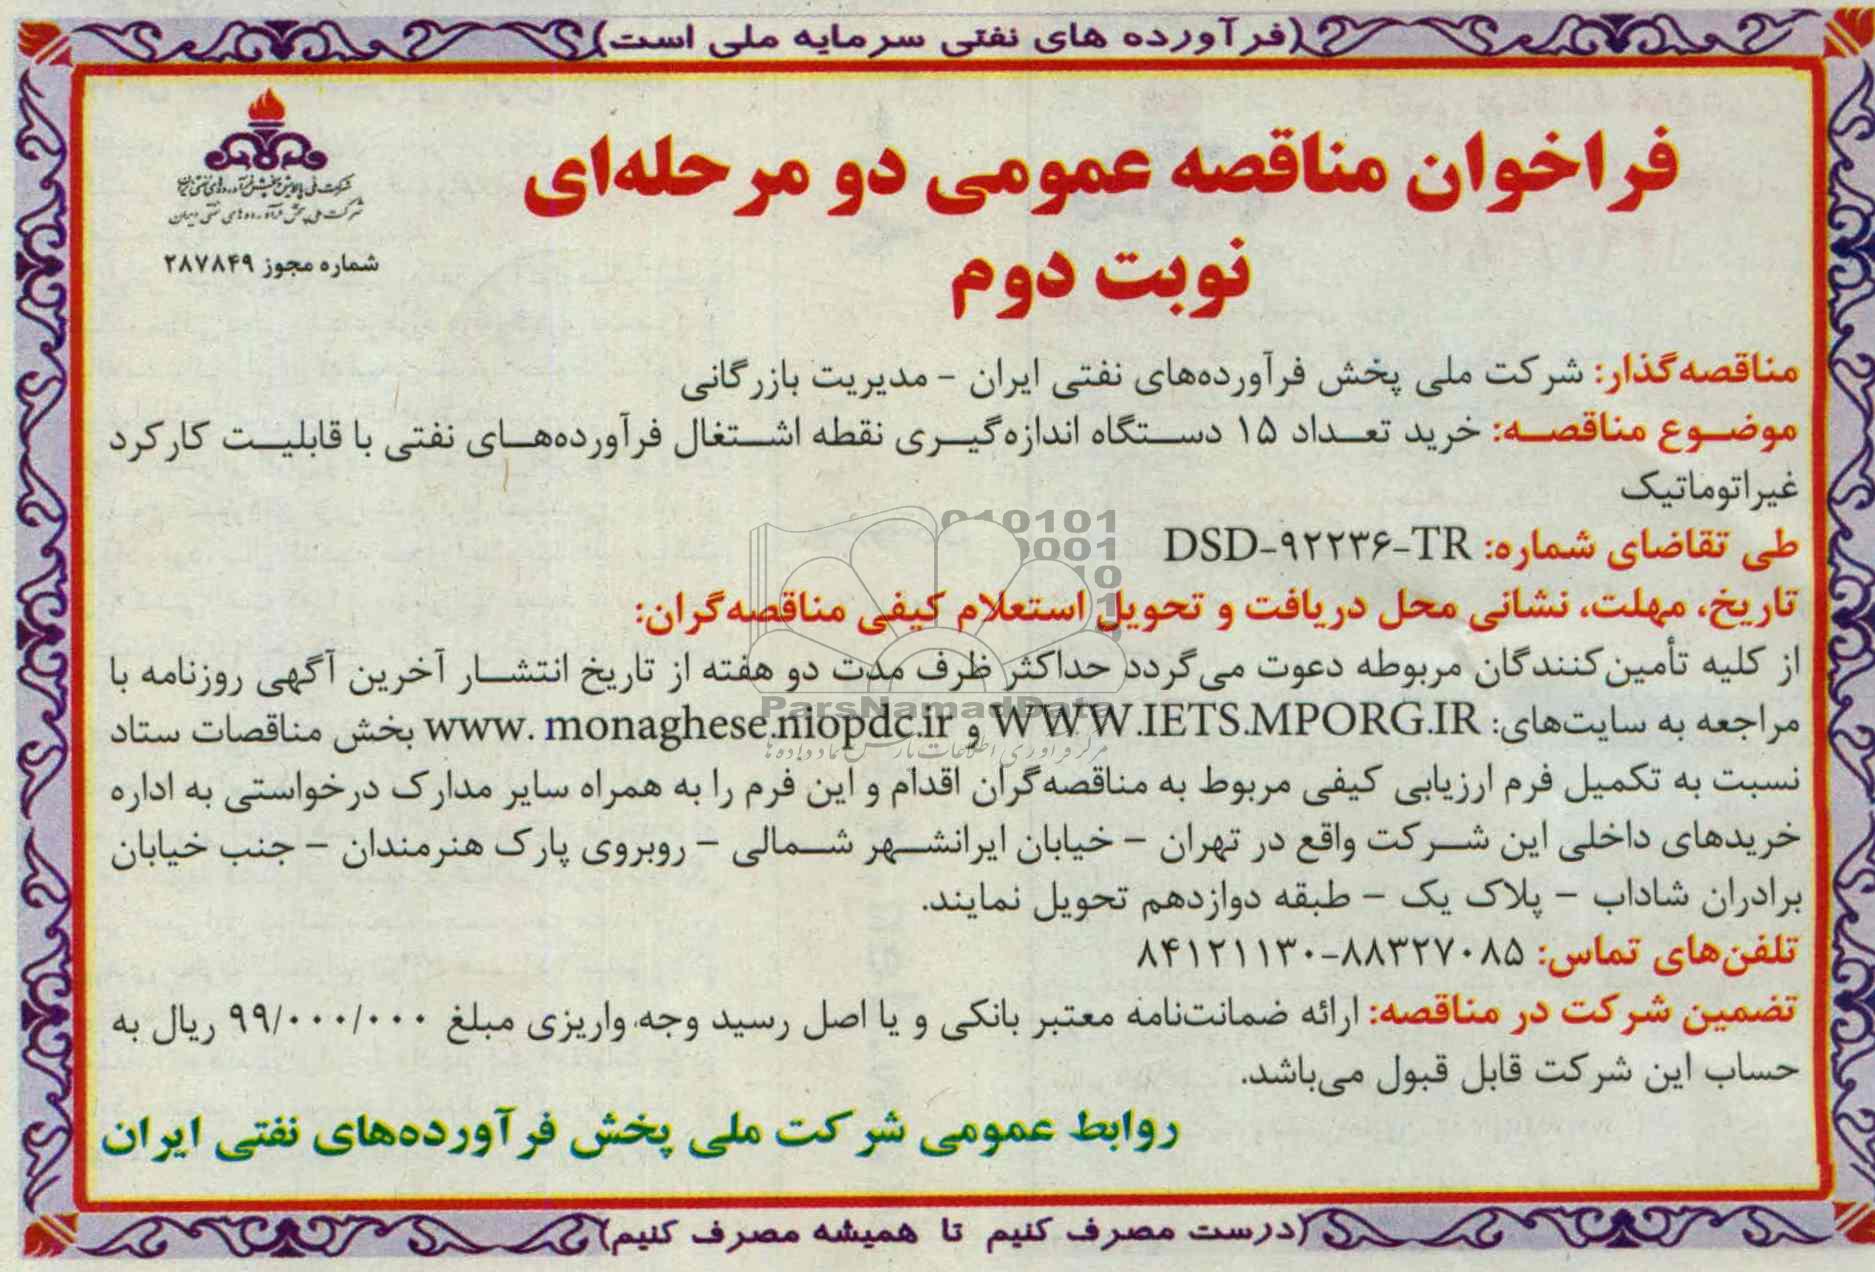 (فرآورده های نفتی سرمایه ملی است)
شرکت ملی پالایش و پخش فرآورده‌های نفتی ایران
شرکت ملی پخش فرآورده‌های نفتی ایران
شماره مجوز ۲۸۷۸۴۹
فراخوان مناقصه عمومی دو مرحله‌ای
نوبت دوم
مناقصه‌گذار: شرکت ملی پخش فرآورده‌های نفتی ایران - مدیریت بازرگانی
موضوع مناقصه: خرید تعداد ۱۵ دستگاه اندازه‌گیری نقطه اشتغال فرآورده‌های نفتی با قابلیت کارکرد
غیراتوماتیک
طی تقاضای شماره: DSD-۹۲۲۳۶-TR
تاریخ، مهلت، نشانی محل دریافت و تحویل استعلام کیفی مناقصه‌گران:
از کلیه تأمین‌کنندگان مربوطه دعوت می‌گردد حداکثر ظرف مدت دو هفته از تاریخ انتشار آخرین آگهی روزنامه با
مراجعه به سایت‌های: WWW.IETS.MPORG.IR و www. monaghese.niopdc.ir بخش مناقصات ستاد
نسبت به تکمیل فرم ارزیابی کیفی مربوط به مناقصه‌گران اقدام و این فرم را به همراه سایر مدارک درخواستی به اداره
خریدهای داخلی این شرکت واقع در تهران - خیابان ایرانشهر شمالی - روبروی پارک هنرمندان - جنب خیابان
برادران شاداب - پلاک یک - طبقه دوازدهم تحویل نمایند.
تلفن‌های تماس: ۸۸۳۲۷۰۸۵-۸۴۱۲۱۱۳۰
تضمین شرکت در مناقصه: ارائه ضمانت‌نامه معتبر بانکی و یا اصل رسید وجه، واریزی مبلغ ۹۹/۰۰۰/۰۰۰ ریال به
حساب این شرکت قابل قبول می‌باشد.
روابط عمومی شرکت ملی پخش فرآورده‌های نفتی ایران
(درست مصرف کنیم تا همیشه مصرف کنیم)
010101
0001
10
ParsNamadData
مرکز فرآوری اطلاعات پارس نماد داده ها